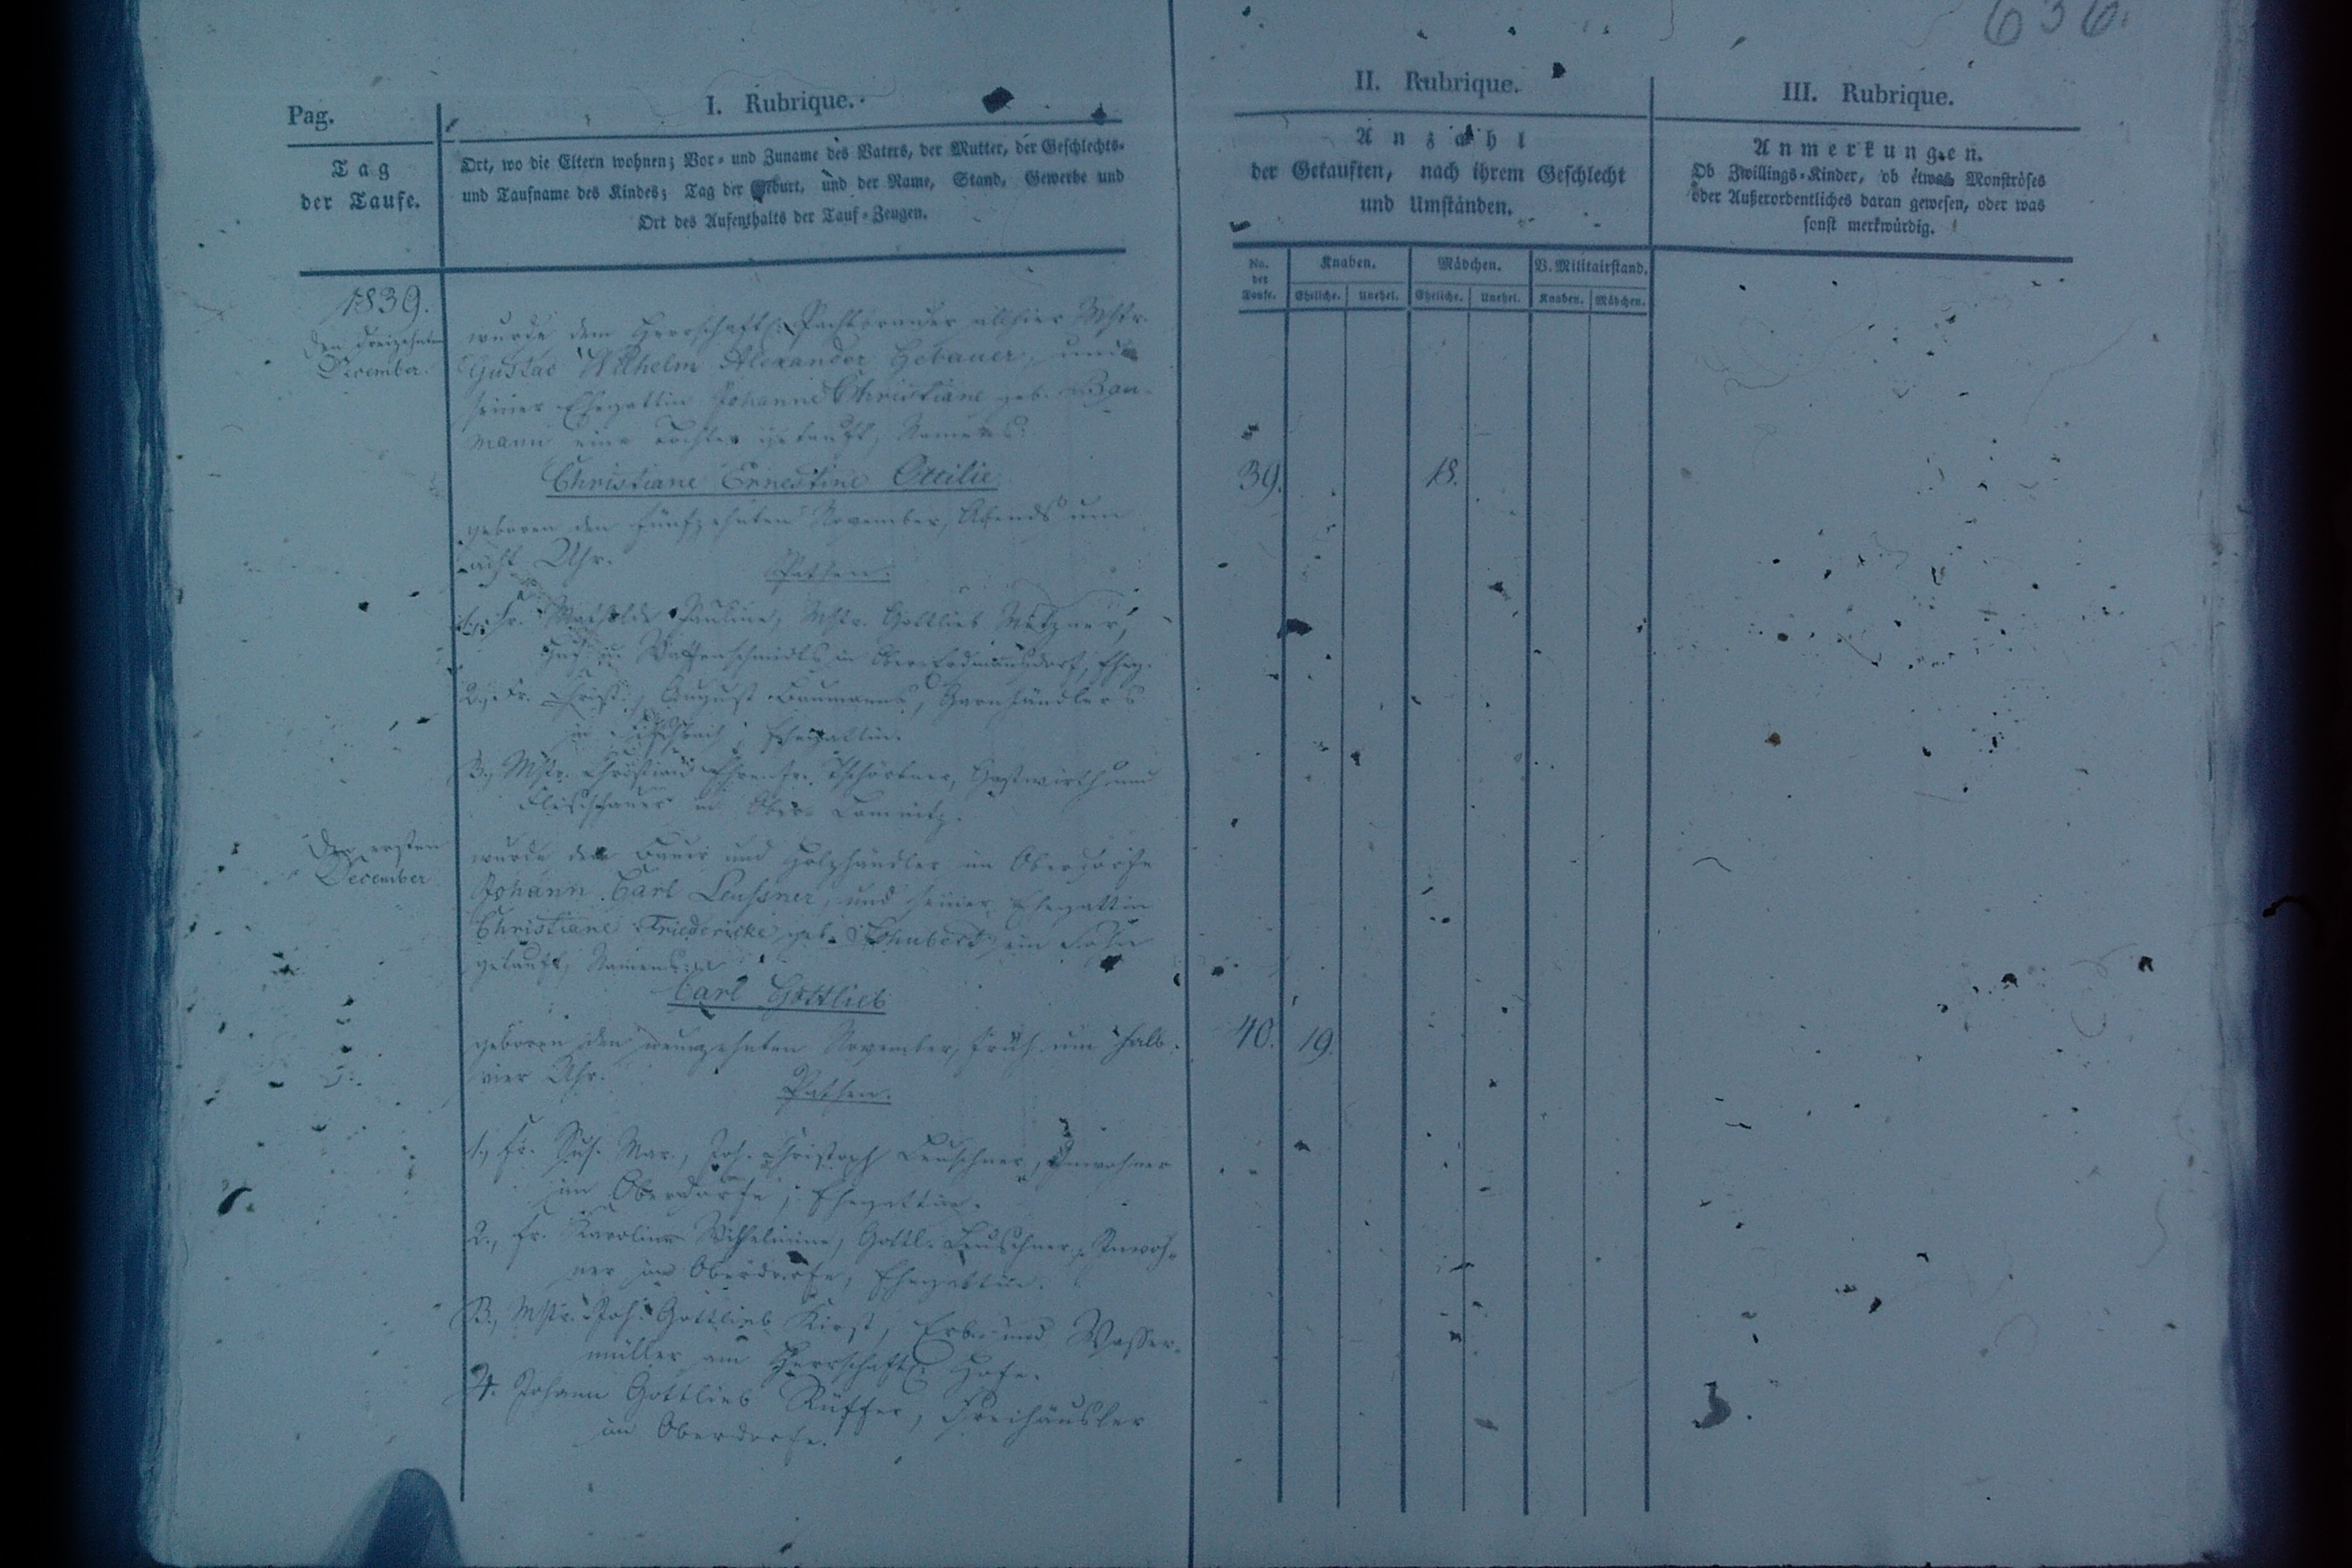 636.
Pag.
I. Rubrique.
II. Rubrique.
III. Rubrique.
Tag
der Taufe.
Ort, wo die Eltern wohnen; Vor- und Zuname des Vaters, der Mutter, der Geschlechts-
und Taufname des Kindes; Tag der Geburt, und der Name, Stand, Gewerbe und
Ort des Aufenthalts der Tauf-Zeugen.
Anzahl
der Getauften, nach ihrem Geschlecht
und Umständen.
Anmerkungen.
Ob Zwillings-Kinder, ob etwas Monströses
oder Außerordentliches daran gewesen, oder was
sonst merkwürdig.
No. der Taufe.
Knaben.
Mädchen.
V. Militairstand.
Eheliche. Unehel. Eheliche. Unehel. Knaben. Mädchen.
1839.
den dreizehnten
December.
wurde dem herrschaftl. allhier Mstr.
Gustav Wilhelm Alexander Gebauer, und
seiner Ehegattin Johanne Christiane geb. Bau-
mann eine Tochter getauft, Namens:
Christiane Ernestine Ottilie
39. 18.
geboren den fünfzehnten November, Abends um
acht Uhr.
Pathen.
1., Fr. Mathilde Pauline, Mstr. Gottlieb
in Ober-Erdmannsdorf, Eheg.
2., Fr. Christ., August Baumanns, Garnhändlers
in Fischbach, Ehegattin.
3., Mstr. Christian Ehrenfr. Tschörtner, Gastwirth und
Fleischhauer in Ober-Lomnitz.
den ersten
December
wurde dem Bauer und Holzhändler im Oberdorfe
Johann Carl Leussner, und seiner Ehegattin
Christiane Friedericke geb. Schubert, ein Sohn
getauft, Namens:
Carl Gottlieb
40. 19.
geboren den neunzehnten November, früh um halb
vier Uhr.
Pathen.
1., Fr. Sus. Mar., Joh. Christoph Leuschner, Inwohner
im Oberdorfe, Ehegattin.
2., Fr. Karoline Wilhelmine, Gottl. Leuschner, Inwoh-
ner im Oberdorfe, Ehegattin.
3., Mstr. Joh. Gottlieb Kirst, Erb- und Wasser-
müller am herrschaftl. Hofe.
4. Johann Gottlieb Rüffer, Freihäusler
im Oberdorfe.